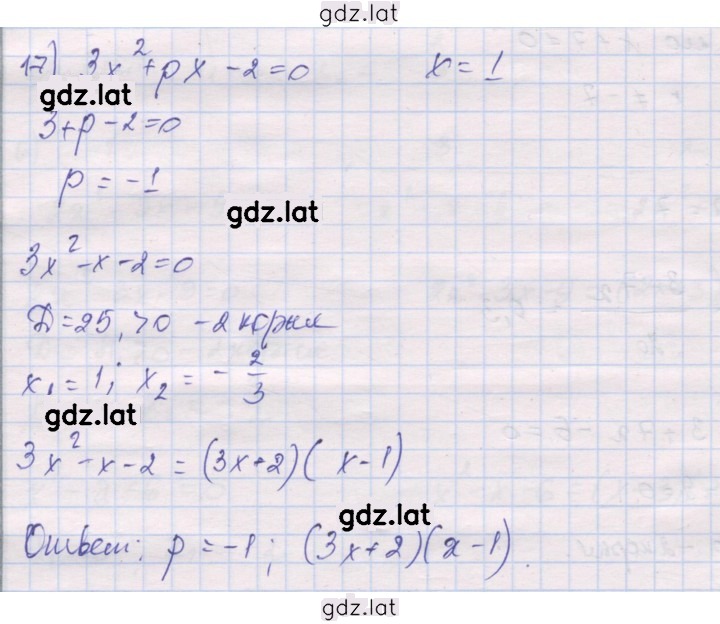 gdz.lat
17) 3x²+px-2=0    x=1
gdz.lat
3+p-2=0
p=-1
gdz.lat
3x²-x-2=0
D=25, >0 -2 корня
x₁=1; x₂=-2/3
gdz.lat
3x²-x-2=(3x+2)( x-1)
gdz.lat
Ответ: p=-1; (3x+2)(x-1).
gdz.lat